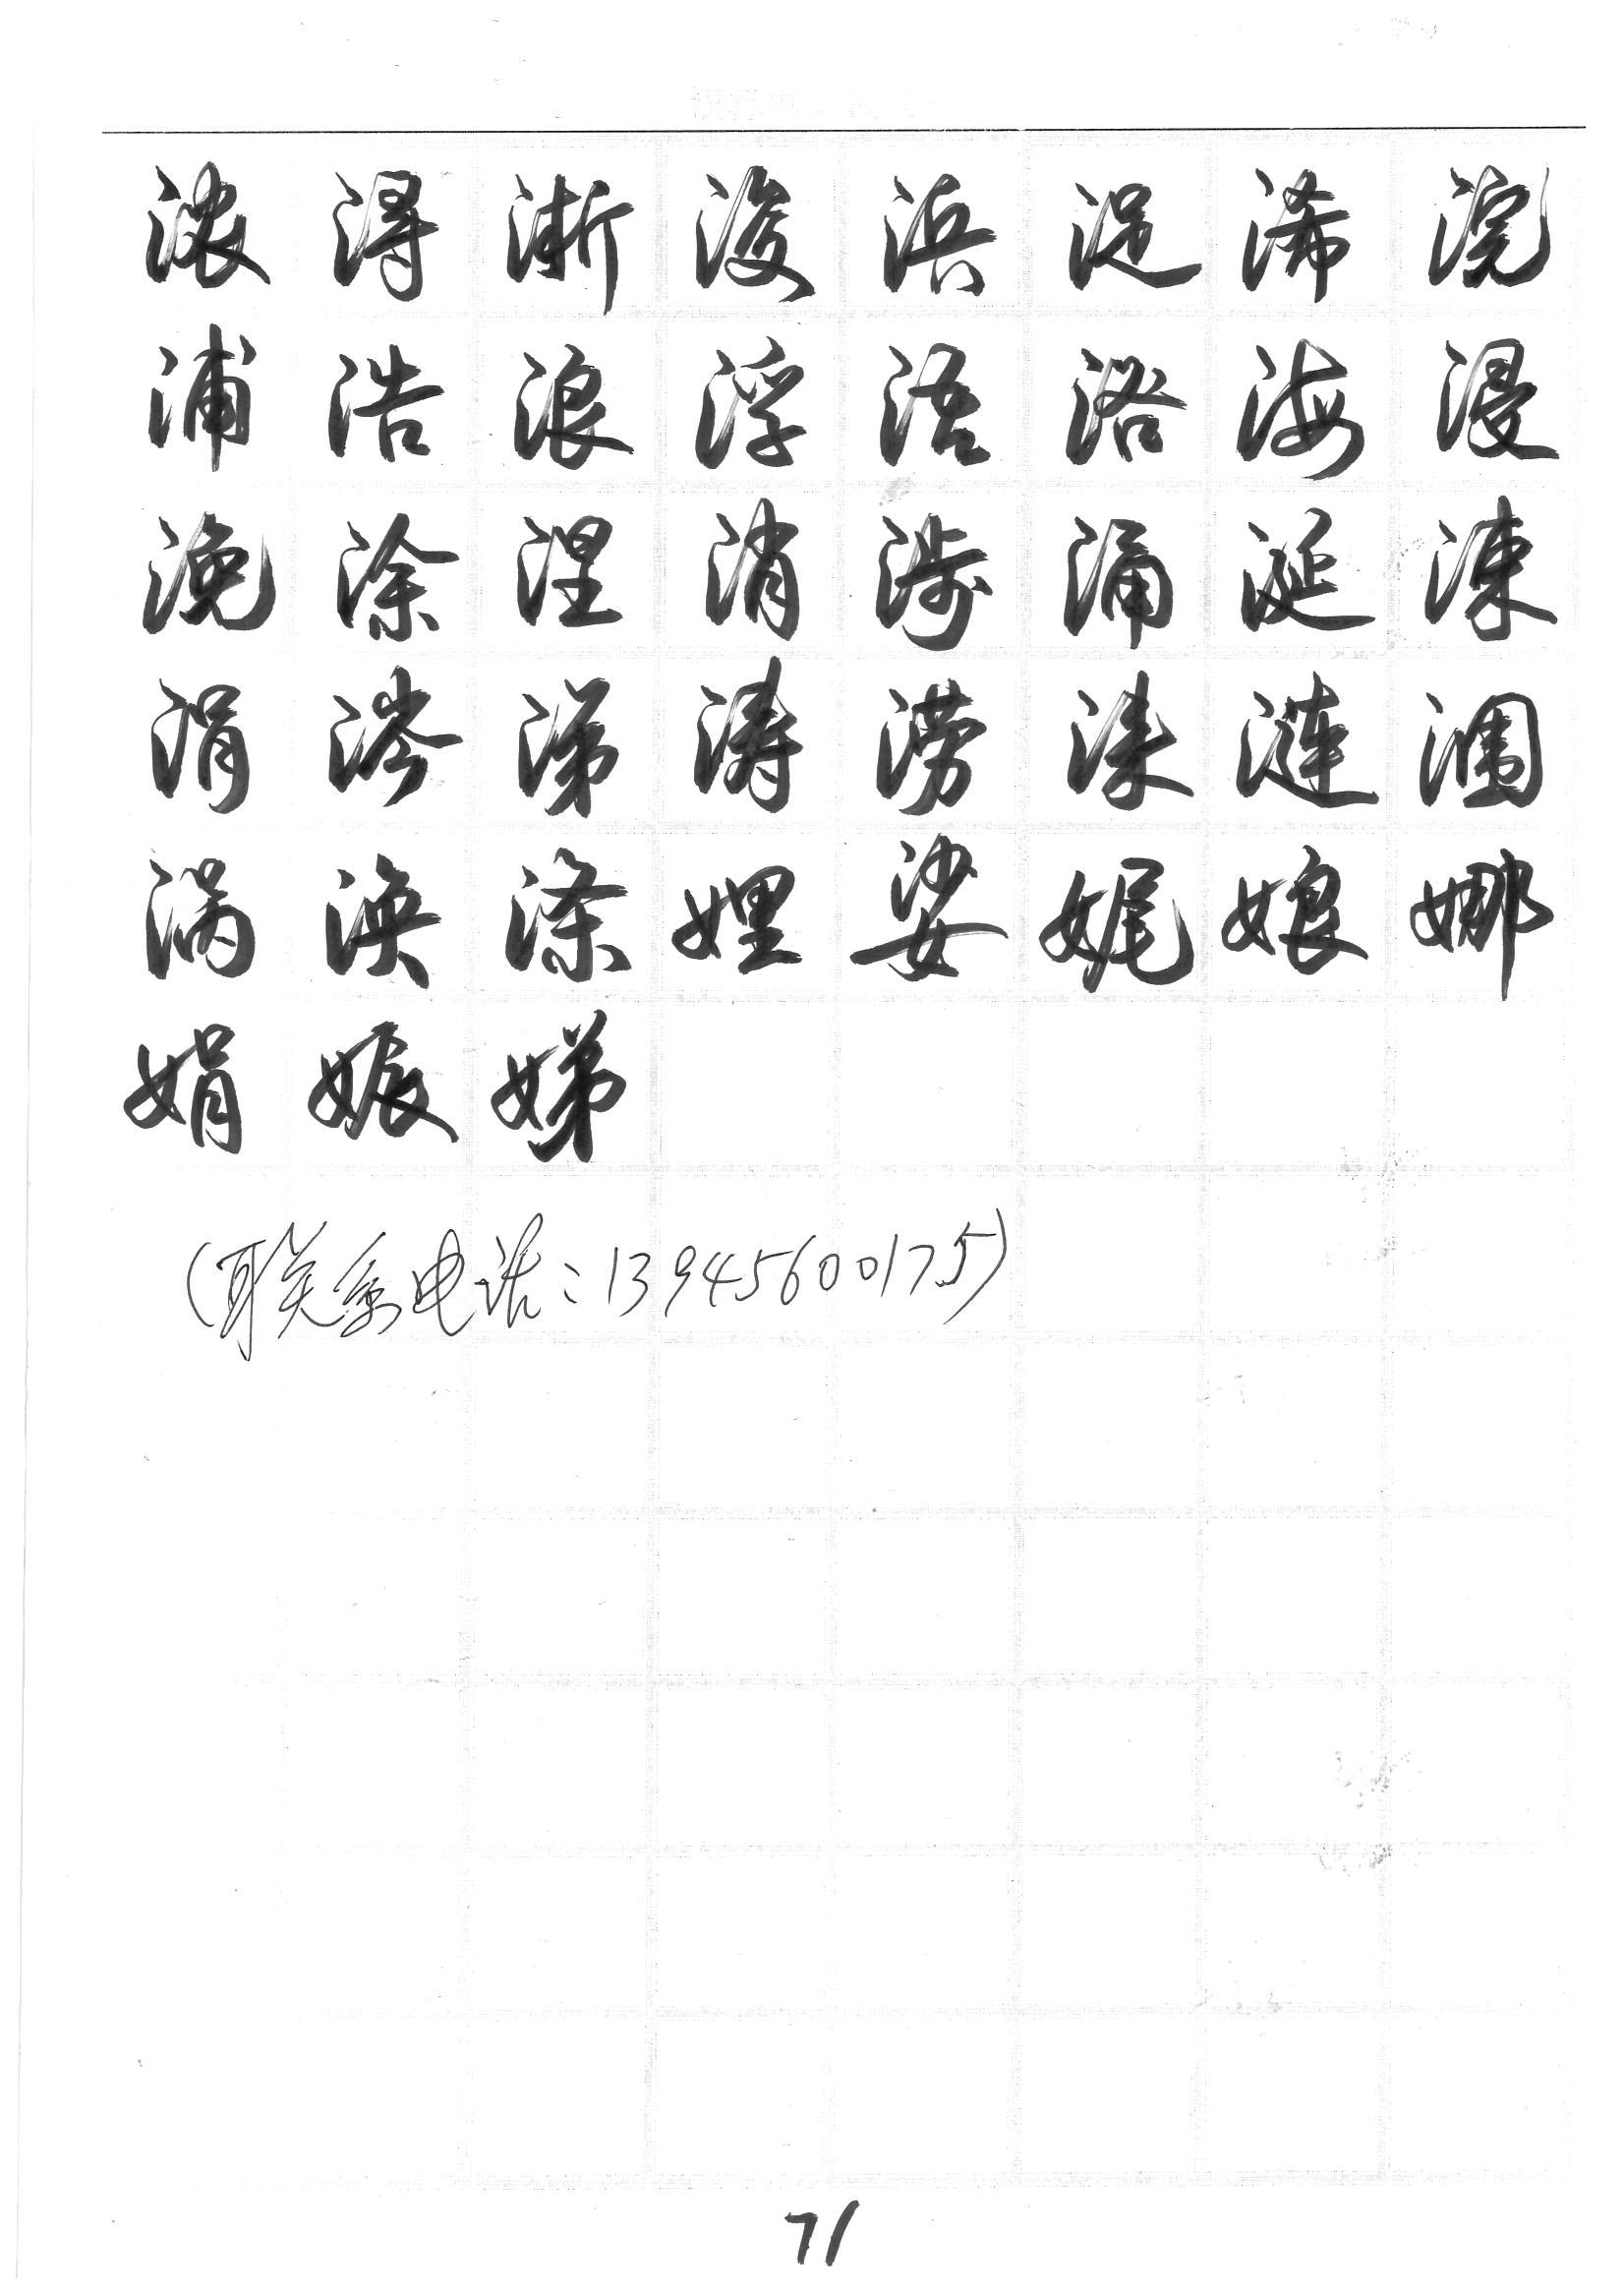 浓浔浙浚浜浞浠浣
浦浩浪浮浯浴海浸
浼涂涅消涉涌涎涑
涓涔涕涛涝涞涟涠
涡涣涤娌娑娓娘娜
娟娠娣
(联系电话：13945600175)
71